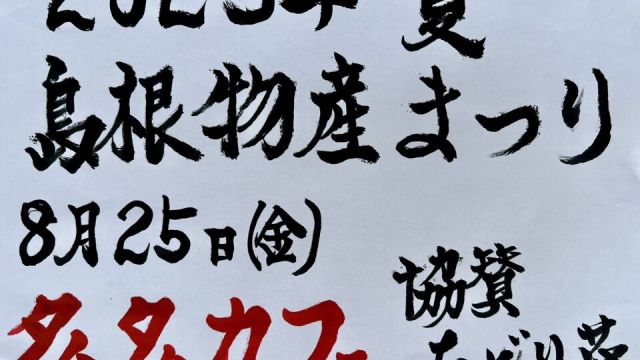 2023年 夏
島根物産まつり
8月25日(金)
タムタムカフェ
協賛